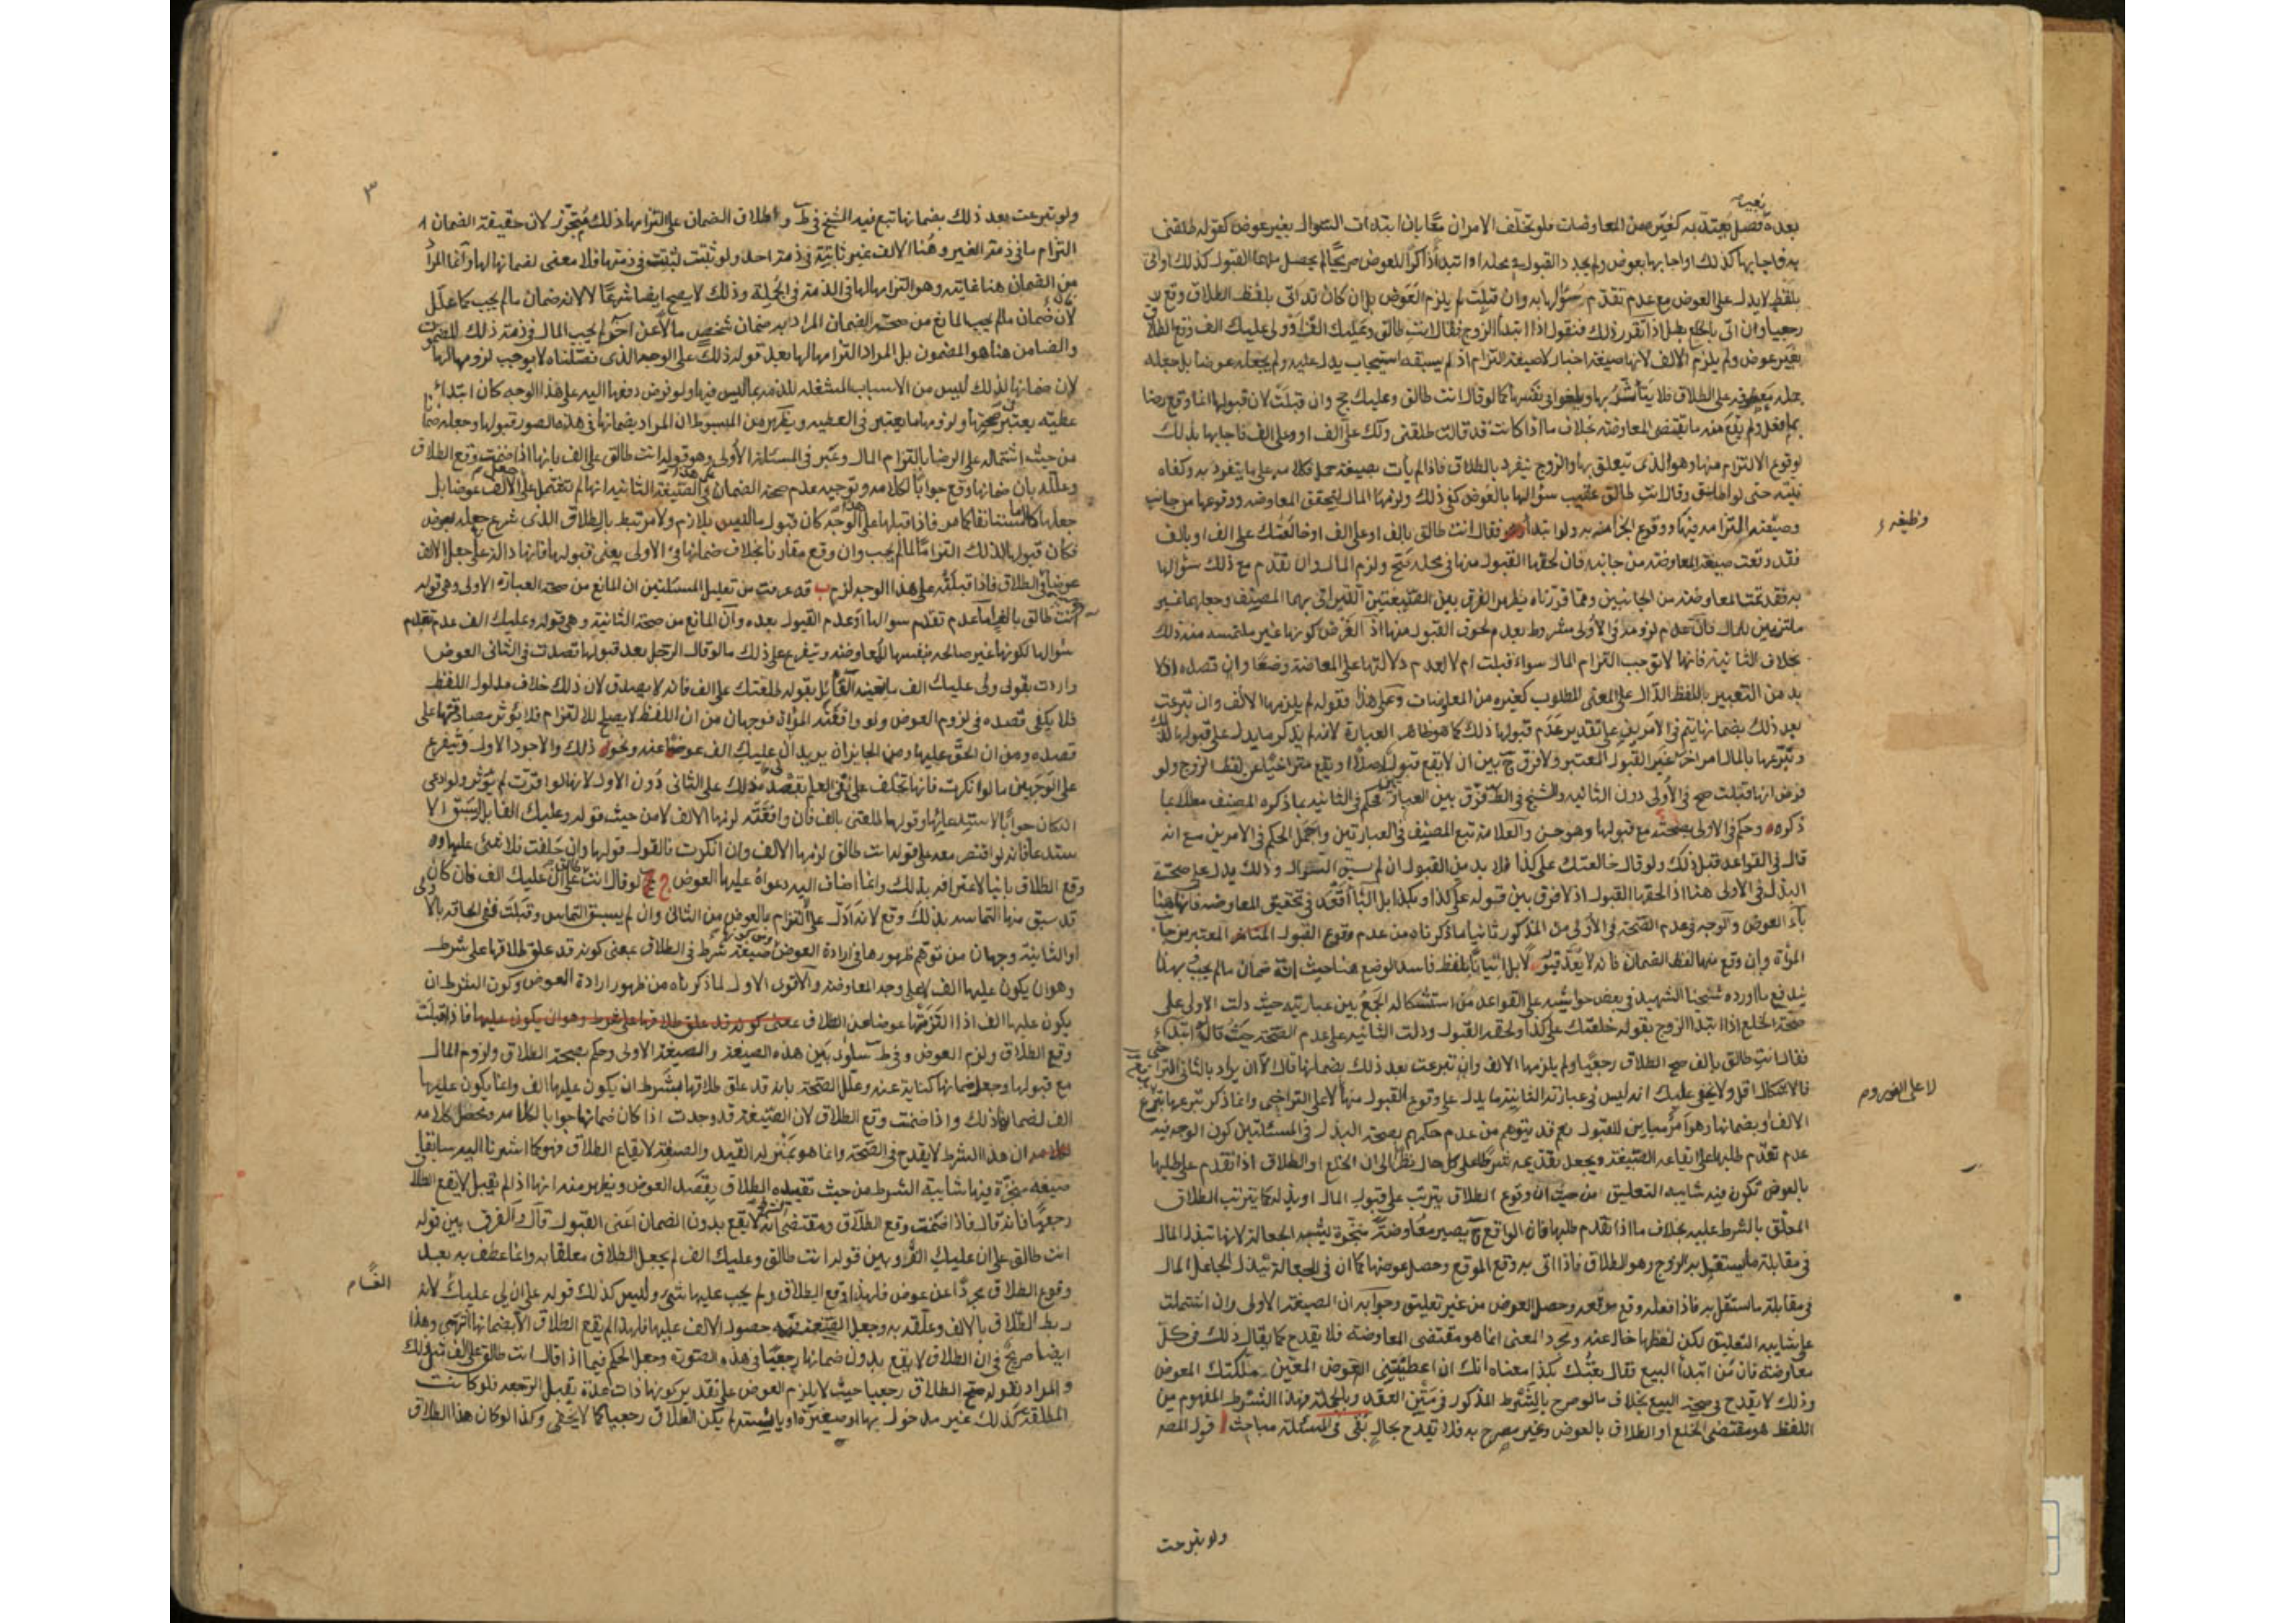 بعده فصل يعتد به كغيره من المعاوضات فلو تخلف الامران معا بان ابتدات السؤال بغير عوض كقوله طلقني
به فاجابها كذلك او اجابها بعوض ولم يجدد القبول في محله او ابتدأ ذاكرا للعوض صريحا لم يحصل منهما القبول كذلك او اتى
بلفظ لا يدل على العوض مع عدم تقدم سؤالها به وان قبلت لم يلزم العوض بل ان كان قد اتى بلفظ الطلاق وقع
رجعيا وان اتى بالخلع بطل اذا تقرر ذلك فنقول اذا ابتدأ الزوج فقال انت طالق وعليك الف او ولي عليك الف وقع الطلاق
بغير عوض ولم يلزم الالف لانها صيغة اخبار لا صيغة التزام اذ لم يسبقه استيجاب يدل عليه ولم يجعله عوضا بل جعله
جملة معطوفة على الطلاق فلا يتأثر بها وتلغو في نفسها كما لو قال انت طالق وعليك حج وان قبلت لان قبولها انما وقع رضا
بما فعل ولم يقع منه ما يقتضي المعاوضة بخلاف ما اذا كانت قد قالت طلقني ولك علي الف او وعلي الف فاجابها بذلك
لوقوع الالتزام منها وهو الذي يتعلق بها والزوج ينفرد بالطلاق فاذا لم يأت بصيغة حمل كلامه على ما ينفرد به وكفاه
نيته حتى لو اطلق وقال انت طالق عقيب سؤالها بالعوض كفى ذلك ولزمها المال لتحقق المعاوضة ووقوعها من جانب
وصيغة التزامه منها ووقوع الجزا منه به ولو ابتدأ هو فقال انت طالق بالف او على الف او خالعتك على الف او بالف
وظيفه
فقد وقعت صيغة المعاوضة من جانبه فان لحقها القبول منها في محله صح ولزم المال وان تقدم مع ذلك سؤالها
به فقد تمت المعاوضة من الجانبين ومما قررناه يظهر الفرق بين الصيغتين اللتين اتى بهما المصنف وجعلهما غير
ملتزمين للمال فان عدم لزومه في الاولى مشروط بعدم لحوق القبول منها اذ الغرض كونها غير ملتمسة منه ذلك
بخلاف الثانية فانها لا توجب التزام المال سواء قبلت ام لا لعدم دلالتها على المعاوضة وضعا وان قصده اذ لا
بد من التعبير باللفظ الدال على المعنى المطلوب كغيره من المعاوضات وعلى هذا فقوله لم يلزمها الالف وان تبرعت
بعد ذلك بضمانها يتم في الامرين على تقدير عدم قبولها ذلك كما هو ظاهر العبارة لانه لم يذكر ما يدل على قبولها لذلك
وتبرعها بالمال امر اخر غير القبول المعتبر ولا فرق ح بين ان لا يقع قبول اصلا او يقع متراخيا عن لفظ الزوج ولو
فرض انها قبلت صح في الاولى دون الثانيه والشيخ في ط فرق بين العبارتين فحكم في الثانيه بما ذكره المصنف معللا بما
ذكره وحكم في الاولى بصحته مع قبولها وهو حسن والعلامة تبع المصنف في العبارتين واجمل الحكم في الامرين مع انه
قال في القواعد قبل ذلك ولو قال خالعتك على كذا فلا بد من القبول ان لم يسبق السؤال وذلك يدل على صحة
البذل في الاولى هنا اذا الحقها القبول اذ لا فرق بين قبوله على كذا وبكذا بل البآ اقعد في تحقيق المعاوضة فانها هنا
بآء العوض والوجه في عدم الصحة في الاولى من المذكور ثانيا ما ذكرناه من عدم وقوع القبول المعتبر من جانب
المرأة وان وقع منها لفظ الضمان فانه لا يعد قبولا بل اتيانا بلفظ فاسد الوضع هنا حيث انه ضمان ما لم يجب بهذا
يندفع ما اورده شيخنا الشهيد في بعض حواشيه على القواعد من استشكاله الجمع بين عبارتيه حيث دلت الاولى على
صحة الخلع اذا ابتدأ الزوج بقوله خلعتك على كذا ولحقه القبول ودلت الثانيه على عدم الصحة حيث قال لو ابتداء
فقال انت طالق بالف صح الطلاق رجعيا ولم يلزمها الالف وان تبرعت بعد ذلك بضمانها قال الا ان يراد بالثاني التراخي
فالاشكال اقل ولا يخفى عليك انه ليس في عبارته الثانية ما يدل على وقوع القبول منها لا على التراخي وانما ذكر تبرعها بتبرع
لا على الفور وم
الالف او بضمانها وهو امر مباين للقبول نعم قد يتوهم من عدم حكمهم بصحة البذل في المسئلتين كون الوجه فيه
عدم تقدم طلبها على ايقاعه الصيغة ويجعل تقديمه شرطا على كل حال نظرا الى ان الخلع او الطلاق اذا تقدم على طلبها
بالعوض تكون فيه شايبة التعليق من حيث ان وقوع الطلاق يترتب على قبول المال او بذله كما يترتب الطلاق
المعلق بالشرط عليه بخلاف ما اذا تقدم طلبها فان الواقع ح يصير معاوضة منجزة يشبه الجعالة لانها تبذل المال
في مقابلة ما يستقل به الزوج وهو الطلاق فاذا اتى به وقع الموقع وحصل عوضها كما ان في الجعالة يبذل الجاعل المال
في مقابلة ما استقل به فاذا فعله وقع موقعه وحصل العوض من غير تعليق وجوابه ان الصيغة الاولى وان اشتملت
على شايبة التعليق لكن لفظها خال عنه ومجرد المعنى انما هو مقتضى المعاوضة فلا يقدح كما يقال ذلك في كل
معاوضة فان من ابتدأ البيع فقال بعتك بكذا معناه انك ان اعطيتني العوض المعين ملكتك المعوض
وذلك لا يقدح في صحة البيع بخلاف ما لو صرح بالشرط المذكور في متن العقد وبالجملة فهذا الشرط المفهوم من
اللفظ هو مقتضى الخلع او الطلاق بالعوض وغير مصرح به فلا يقدح بحال بقي في المسئلة مباحث ا قول المصـ
ولو تبرعت
٣
ولو تبرعت بعد ذلك بضمانها تبع فيه الشيخ في ط واطلاق الضمان على التزامها ذلك متجوز لان حقيقة الضمان
التزام ما في ذمة الغير وهنا الالف غير ثابتة في ذمة احد ولو ثبتت لثبتت في ذمتها فلا معنى لضمانها لها وانما المراد
من الضمان هنا غايته وهو التزامها لها في الذمة في الجملة وذلك لا يصح ايضا شرعا لا لانه ضمان ما لم يجب كما علل
لان ضمان ما لم يجب المانع من صحة الضمان المراد به ضمان شخص مالا عن آخر لم يجب المال في ذمته ذلك المضمون
والضامن هنا هو المضمون بل المراد التزامها لها بعد قوله ذلك على الوجه الذي نقلناه لا يوجب لزومها لها
لان ضمانها لذلك ليس من الاسباب المشغله للذمه بما ليس فيها ولو فرض دفعها اليه على هذا الوجه كان ابتداء
عطيه يعتبر صحتها ولزومها ما يعتبر في العطيه ويظهر من المبسوط ان المراد بضمانها في هذه الصور قبولها وجعله ضمانا
من حيث اشتماله على الرضا بالتزام المال وعبر في المسئلة الاولى وهو قوله انت طالق على الف بانها اذا ضمنت وقع الطلاق
وعلله بان ضمانها وقع جوابا لكلامه وتوجيه عدم صحة الضمان في الصيغة الثانيه انها لم تشتمل على جعل الالف عوضا بل
جعلها كلاما مستانفا كما مر فاذا قبلها على هذا الوجه كان قبول ما ليس بلازم ولا مرتبط بالطلاق الذي شرع جعله بعوض
فكان قبولها لذلك التزاما لما لم يجب وان وقع مقارنا بخلاف ضمانها في الاولى يعني قبولها فانها دالة على جعل الالف
عوضا في الطلاق فاذا قبلته على هذا الوجه لزم ب قد عرفت من تعليل المسئلتين ان المانع من صحة العبارة الاولى وهي قوله
انت طالق بالف اما عدم تقدم سؤالها او عدم القبول بعده وان المانع من صحة الثانية وهي قوله وعليك الف عدم تقدم
سؤالها لكونها غير صالحه بنفسها للمعاوضة ويتفرع على ذلك ما لو قال الرجل بعد قبولها قصدت في الثاني العوض
واردت بقولي ولي عليك الف ما يعنيه القائل بقوله طلقتك على الف فانه لا يصدق لان ذلك خلاف مدلول اللفظ
فلا يكفي قصده في لزوم العوض ولو وافقته المرأة فوجهان من ان اللفظ لا يصلح للالتزام فلا يؤثر مصادقتها على
قصده ومن ان الحق عليها ومن الجايز ان يريد ان عليك الف عوضا عنه ونحو ذلك والاجود الاول ويتفرع
على الوجهين ما لو انكرت فانها تحلف على نفي العلم بقصده ذلك على الثاني دون الاول لانها لو اقرت لم يؤثر ولو ادعى
انه كان جوابا لاستدعائها وقولها طلقني بالف فان وافقته لزمها الالف لا من حيث قوله وعليك الف بل لسبق الا
ستدعا فانه لو اقتصر معه على قوله انت طالق لزمها الالف وان انكرت فالقول قولها وان حلفت فلا شئ عليها و
وقع الطلاق باينا لاعترافه بذلك وانما اضاف اليه دعواه عليها العوض ج لو قال انت طالق على ان عليك الف فان كان
قد سبق منها التماسه بذلك وقع لانه ادل على التزام بالعوض من الثاني وان لم يسبق التماس وقبلت ففي الحاقه بالاولى
او الثانية وجهان من توهم ظهورها في ارادة العوض ومن كونها صيغة شرط في الطلاق بمعنى كونه قد علق طلاقها على شرط
وهو ان يكون عليها الف لا على وجه المعاوضة والاقوى الاول لما ذكرناه من ظهور ارادة العوض وكون الشرط ان
يكون عليها الف اذا التزمتها عوضا عن الطلاق بمعنى كونه قد علق طلاقها على شرط وهو ان يكون عليها فاذا قبلت
وقع الطلاق ولزم العوض وفي ط ساوى بين هذه الصيغة والصيغة الاولى وحكم بصحة الطلاق ولزوم المال
مع قبولها وجعل ضمانها كناية عنه وعلل الصحة بانه قد علق طلاقها بشرط ان يكون عليها الف وانما يكون عليها
الف لضمان ذلك واذا ضمنت وقع الطلاق لان الصيغة قد وجدت اذا كان ضمانها جوابا لكلامه ومحصل كلامه
ان هذا الشرط لا يقدح في الصحة وانما هو بمنزلة القيد والصيغة لايقاع الطلاق فهو كما اشرنا اليه سابقا في
صيغة منجزة فيها شايبة الشرط من حيث تقييده الطلاق بقصد العوض ويظهر منه انها اذا لم يقبل لا يقع الطلاق
رجعيا فانه قال فاذا ضمنت وقع الطلاق ومقتضى الشرط انه لا يقع بدون الضمان اعني القبول قال والفرق بين قوله
انت طالق على ان عليك الف وبين قوله انت طالق وعليك الف لم يجعل الطلاق معلقا به وانما عطف به بعد
الفًا م
وقوع الطلاق مجردا عن عوض فلهذا وقع الطلاق ولم يجب عليها شئ وليس كذلك قوله على ان لي عليك لانه
ربط الطلاق بالالف وعلقه به وجعل الصيغة حصول الالف عليها فلهذا لم يقع الطلاق الا بضمانها انتهى وهذا
ايضا صريح في ان الطلاق لا يقع بدون ضمانها رجعيا في هذه الصورة وجعل الحكم فيما اذا قال انت طالق على الف مثل ذلك
والمراد بقوله صح الطلاق رجعيا حيث لا يلزم العوض على تقدير كونها ذات عدة يقبل الرجعه فلو كانت
المطلقة كذلك غير مدخول بها او صغيرة او يائسة لم يكن الطلاق رجعيا كما لا يخفى وكذا لو كان هذا الطلاق